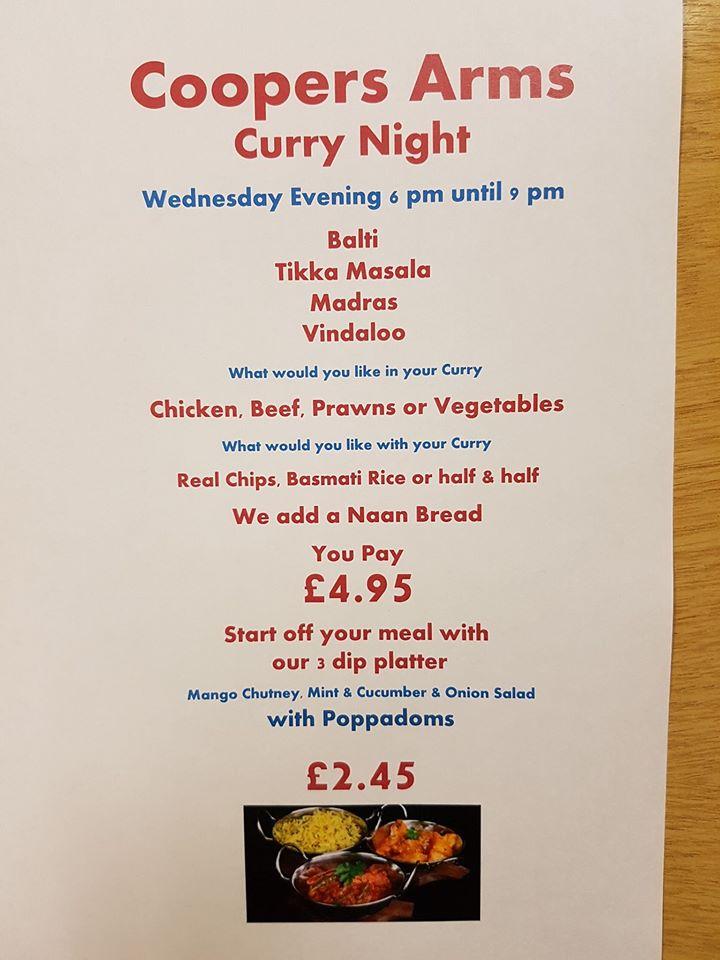 Coopers Arms
Curry Night
Wednesday Evening 6 pm until 9 pm
Balti
Tikka Masala
Madras
Vindaloo
What would you like in your Curry
Chicken, Beef, Prawns or Vegetables
What would you like with your Curry
Real Chips, Basmati Rice or half & half
We add a Naan Bread
You Pay
£4.95
Start off your meal with
our 3 dip platter
Mango Chutney, Mint & Cucumber & Onion Salad
with Poppadoms
£2.45